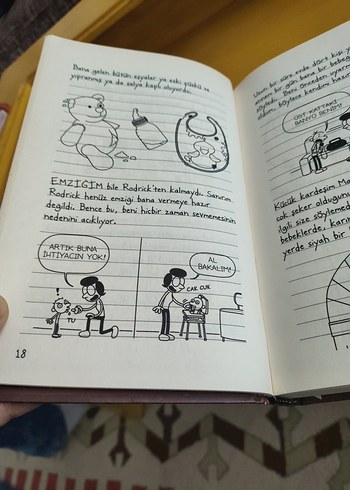 Bana gelen bütün eşyalar ya eski püskü ve
yıpranmış ya da salya kaplı oluyordu.
EMZİĞİM bile Rodrick'ten kalmaydı. Sanırım
Rodrick henüz emziği bana vermeye hazır
değildi. Bence bu, beni hiçbir zaman sevmemesinin
nedenini açıklıyor.
ARTIK BUNA
İHTİYACIN YOK!
!
TU
AL
BAKALIM!
CAK CUK
18
Uzun bir süre evde dört kişi
annem bir gün bana bir bebeğ
söyledi. Beni önceden uyarm
oldum, böylece kendimi hazır
ÜST KATTAKİ
BANYO BENİM!
Küçük kardeşim Ma
çok şeker olduğunu
ilgili size söylemed
bebeklerde, karın
yerde siyah bir